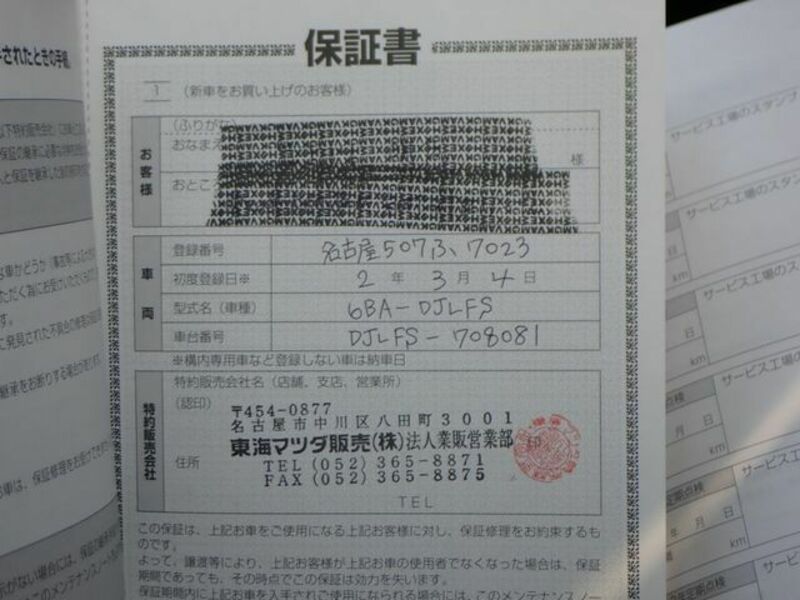 されたときの手続
保証書
1 (新車をお買い上げのお客様)
お客様
(ふりがな)
おなまえ
様
おところ
車両
登録番号 名古屋507ふ7023
初度登録日※ 2年3月4日
型式名(車種) 6BA-DJLFS
車台番号 DJLFS-708081
※構内専用車など登録しない車は納車日
特約販売会社
特約販売会社名(店舗、支店、営業所)
(認印)
〒454-0877
名古屋市中川区八田町3001
東海マツダ販売(株)法人業販営業部 印
住所
TEL(052)365-8871
FAX(052)365-8875
TEL
この保証は、上記お車をご使用になる上記お客様に対し、保証修理をお約束するも
のです。
よって、譲渡等により、上記お客様が上記お車の使用者でなくなった場合は、保証
期間であっても、その時点でこの保証は効力を失います。
保証期間内に上記お車を入手されご使用になられる場合には、このメンテナンスノー
サービス工場のスタンプ
サービス工場のスタン
サービス工場のスタンプ
日
km
サービス工場のスタン
月 日
km
サービス工場
年 月 日
km